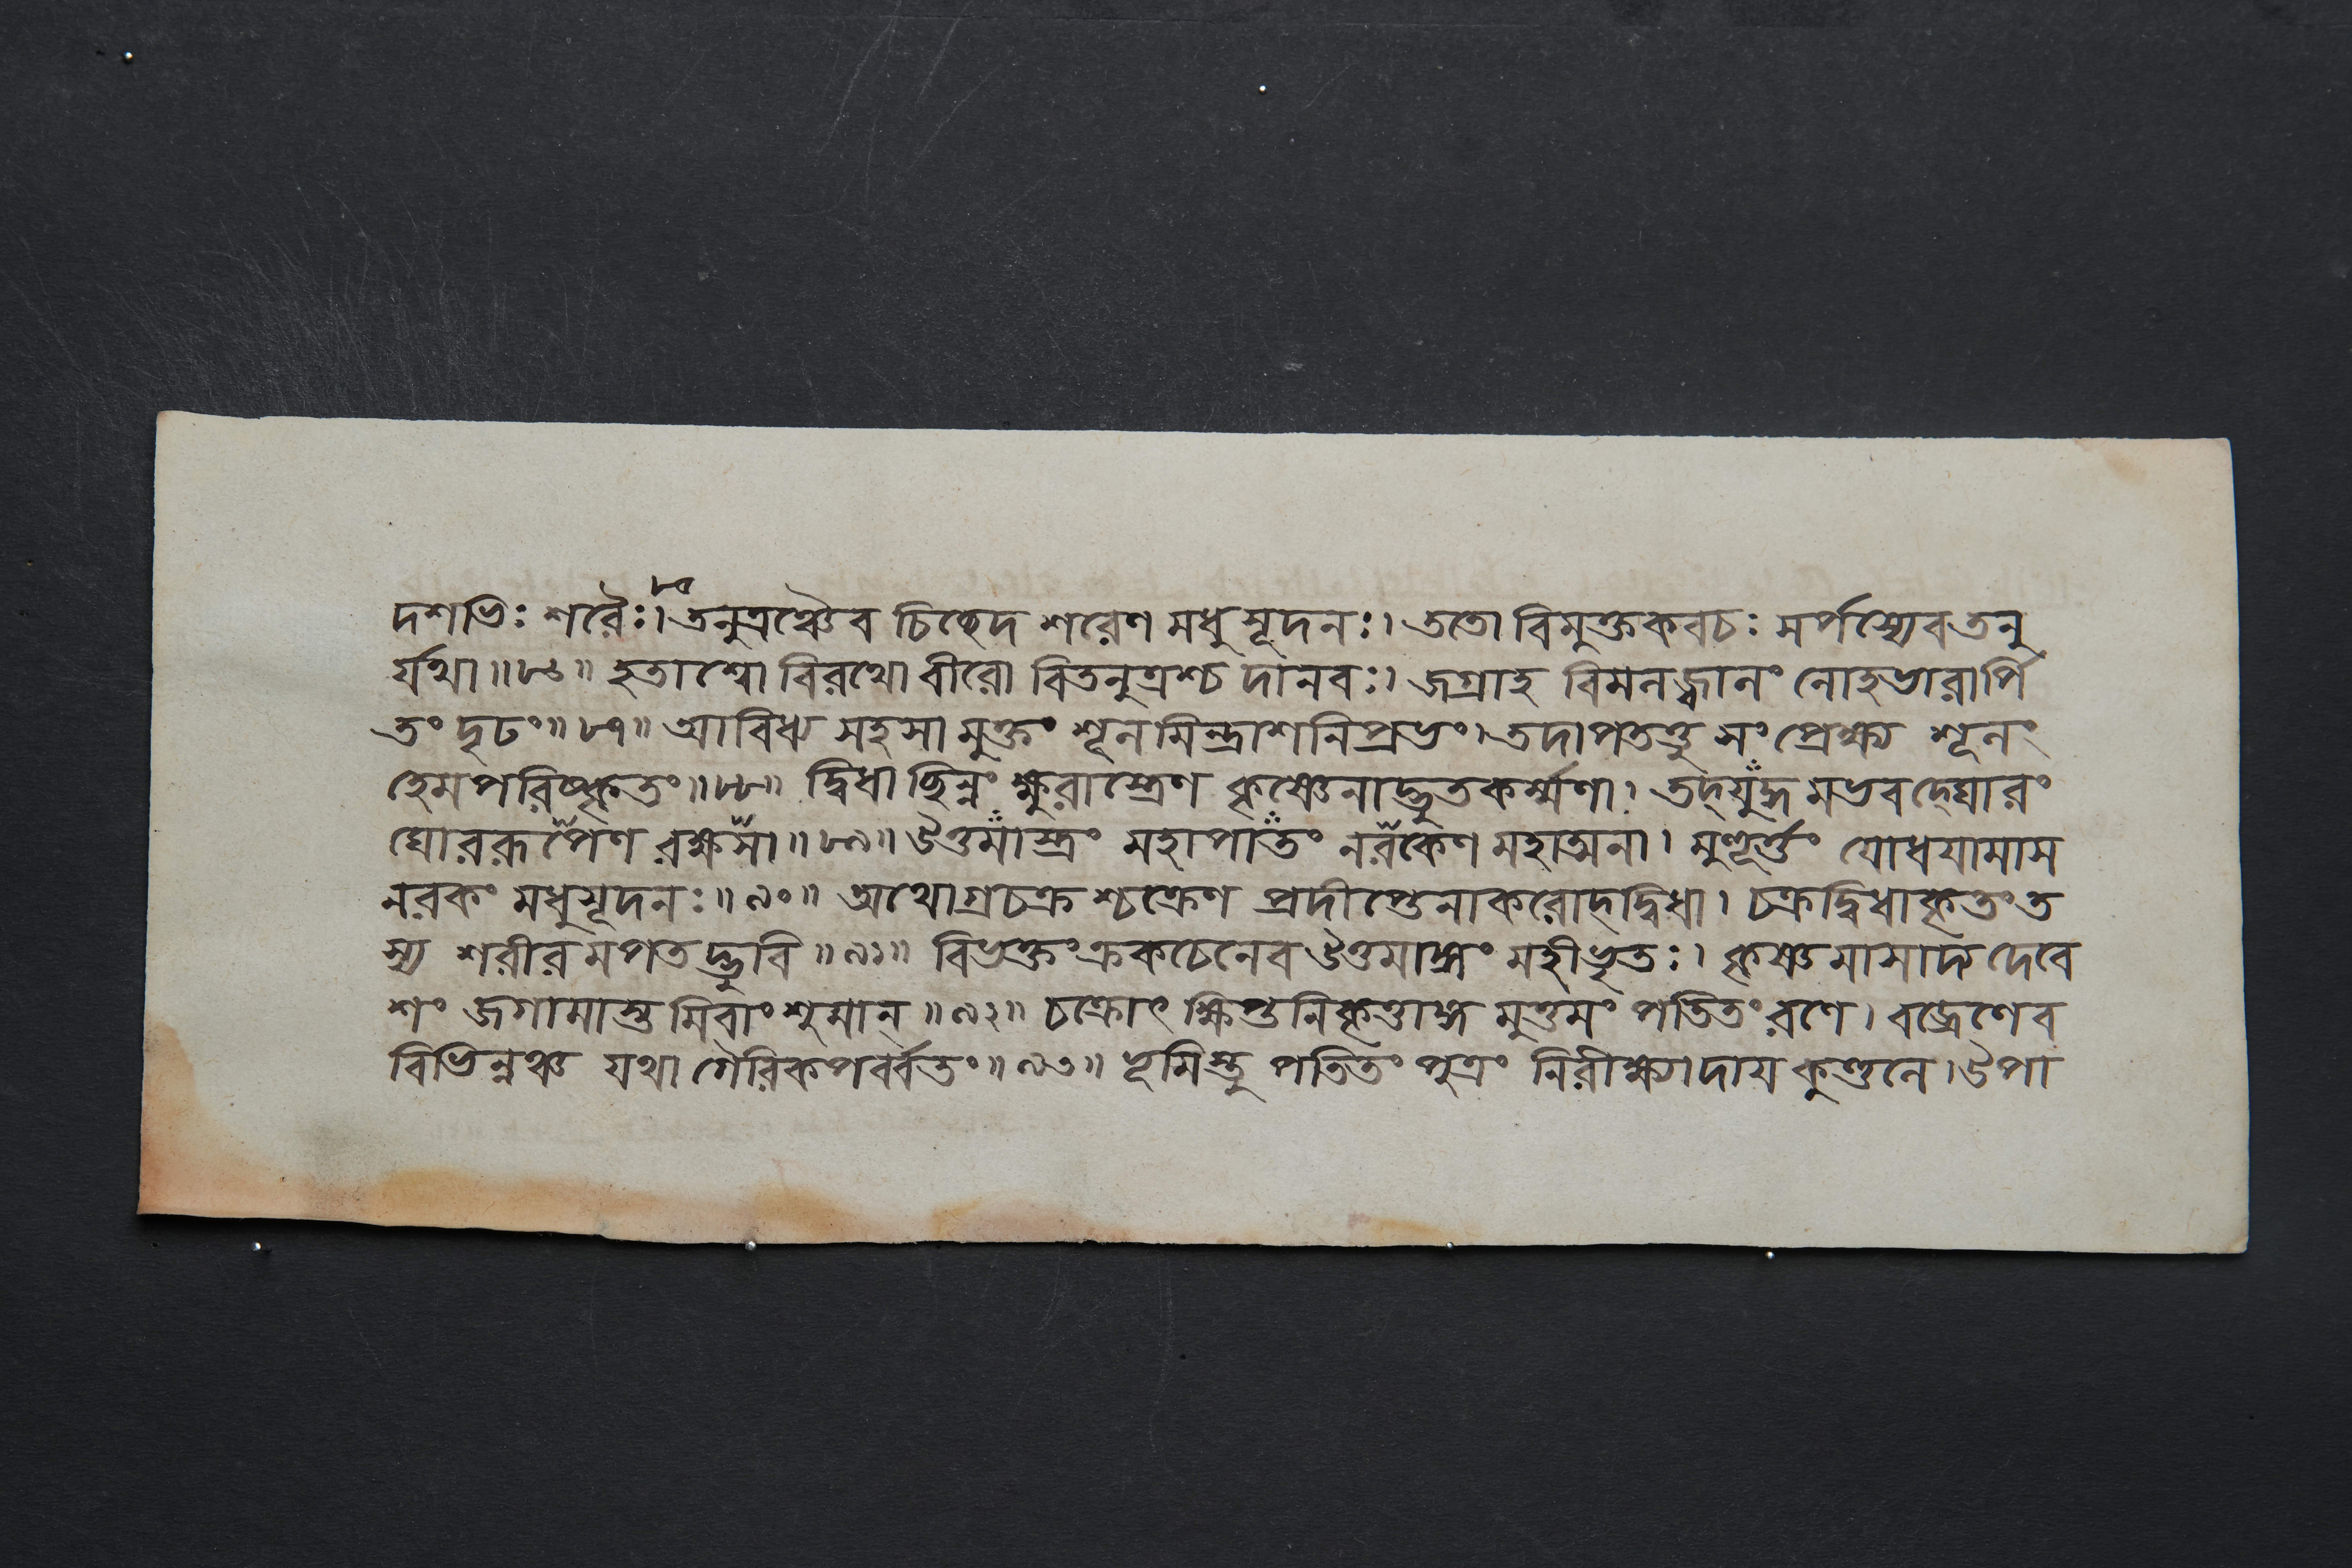 ৮৫
দশভিঃ শরৈঃ। তনুত্রঞ্চৈব চিচ্ছেদ শরেণ মধুসূদনঃ। ততো বিমুক্তকবচঃ সর্পস্যেব তনু
র্যথা॥৮৬॥ হতাশ্বো বিরথো বীরো বিতনুত্রশ্চ দানবঃ। জগ্রাহ বিমলজ্বালং লোহভারার্পি
তং দৃঢং॥৮৭॥ আবিধ্য সহসা মুক্তং শূলমিন্দ্রাশনিপ্রভং। তদাপতত্তু সংপ্রেক্ষ্য শূলং
হেমপরিষ্কৃতং॥৮৮॥ দ্বিধা ছিন্নং ক্ষুরাস্ত্রেণ কৃষ্ণেনাদ্ভুতকর্ম্মণা। তদ্যুদ্ধমভবদ্ঘোরং
ঘোররূপেণ রক্ষসা॥৮৯॥ উত্তমাস্ত্রং মহাপাতং নরকেণ মহাত্মনা। মুহূর্ত্তং যোধযামাস
নরকং মধুসূদনঃ॥৯০॥ অথোগ্রচক্রশ্চক্রেণ প্রদীপ্তেনাকরোদ্দ্বিধা। চক্রদ্বিধাকৃতং ত
স্য শরীরমপতদ্ভুবি॥৯১॥ বিভক্তং ক্রকচেনেব উত্তমাঙ্গং মহীভৃতঃ। কৃষ্ণমাসাদ্য দেবে
শং জগামাস্তমিবাংশুমান্॥৯২॥ চক্রোৎক্ষিপ্তনিকৃত্তাঙ্গমুত্তমং পতিতং রণে। বজ্রেণেব
বিভিন্নঞ্চ যথা গৈরিকপর্ব্বতং॥৯৩॥ ভূমিস্তু পতিতং পুত্রং নিরীক্ষ্যাদায কুণ্ডলে। উপা